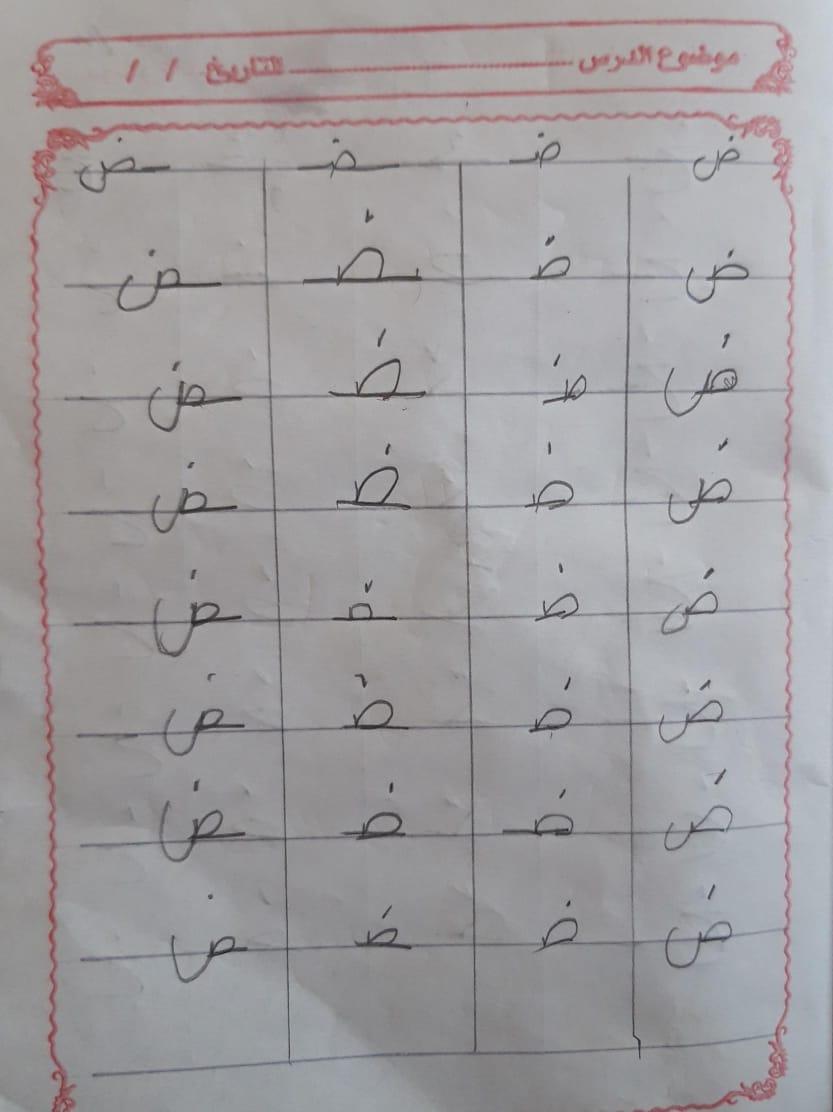 موضوع الدرس ........................ التاريخ / /
ض ضـ ـضـ ـض
ض ضـ ـضـ ـض
ض ضـ ـضـ ـض
ض ضـ ـضـ ـض
ض ضـ ـضـ ـض
ض ضـ ـضـ ـض
ض ضـ ـضـ ـض
ض ضـ ـضـ ـض